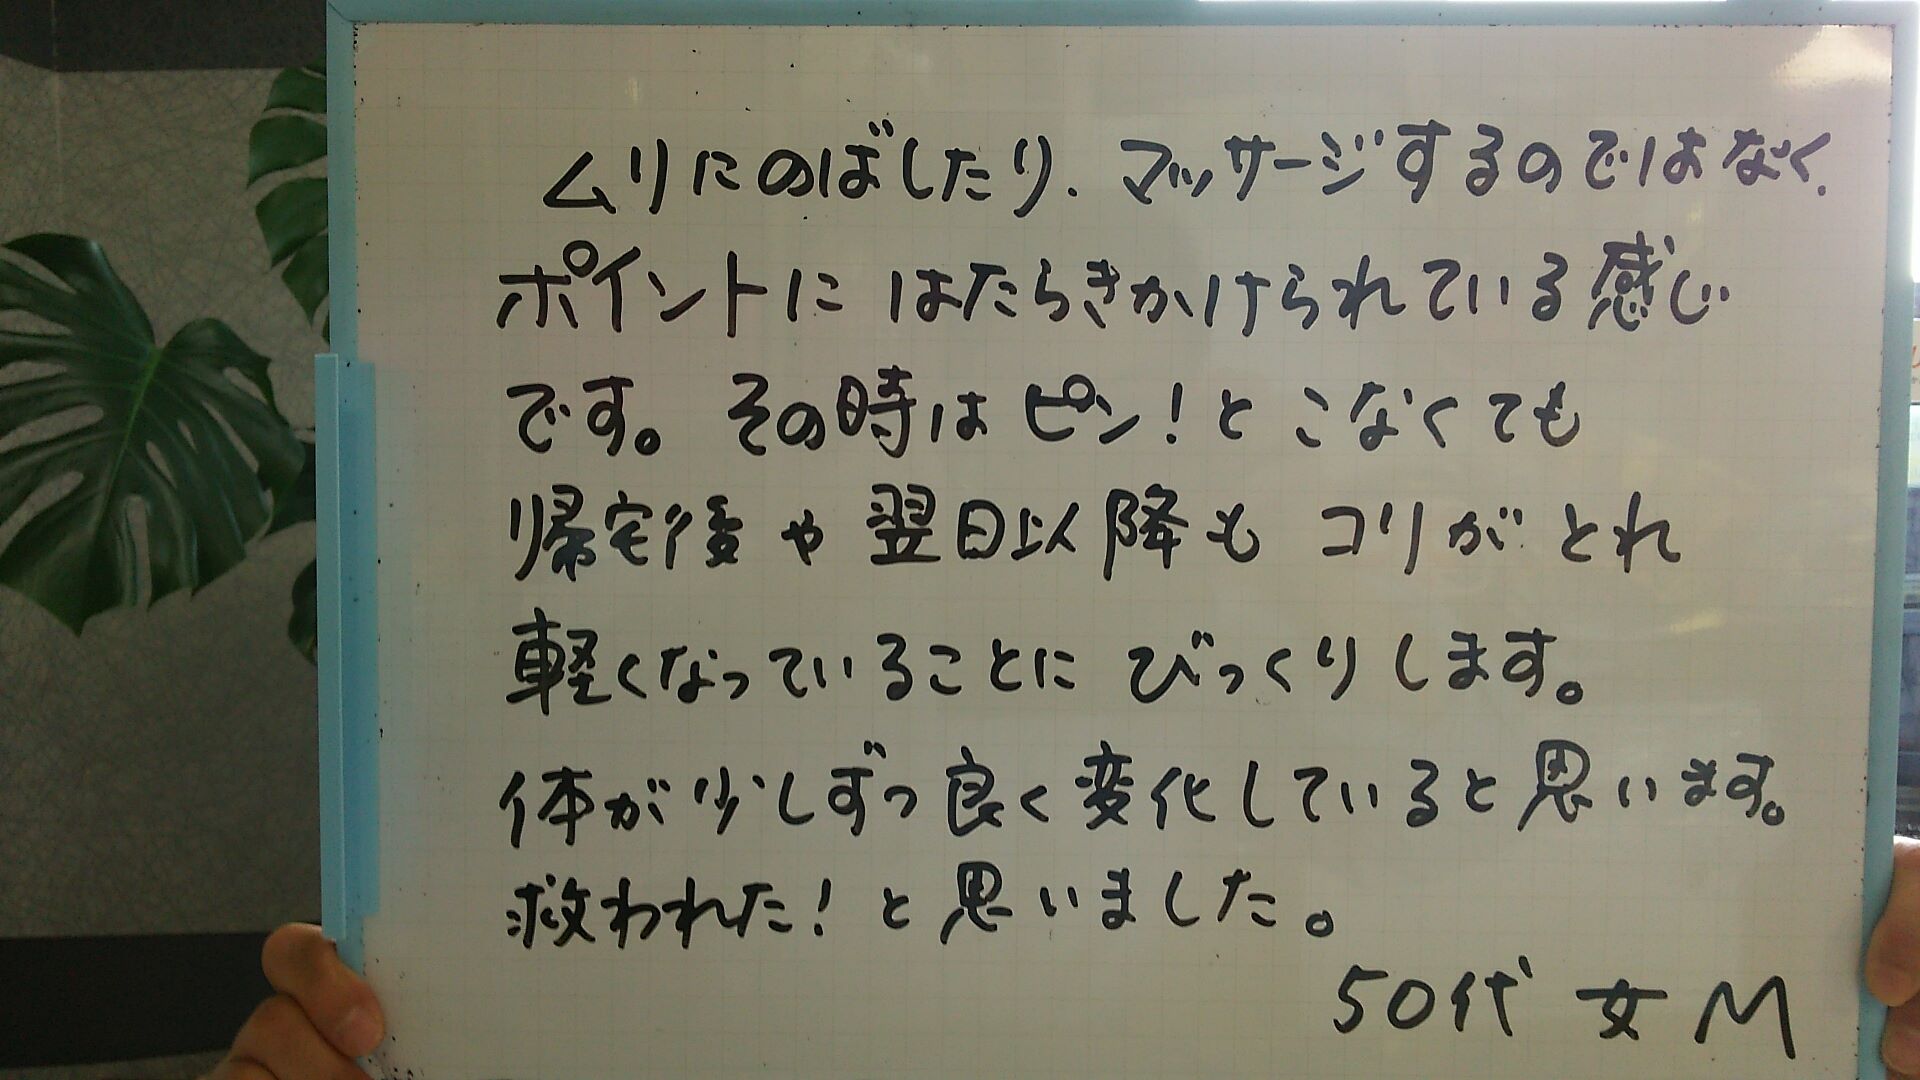 ムリにのばしたり、マッサージするのではなく、
ポイントに はたらきかけられている感じ
です。その時は ピン!と こなくても
帰宅後や翌日以降も コリが とれ
軽くなっていることに びっくりします。
体が少しずつ良く変化していると思います。
救われた!と思いました。
50代 女 M